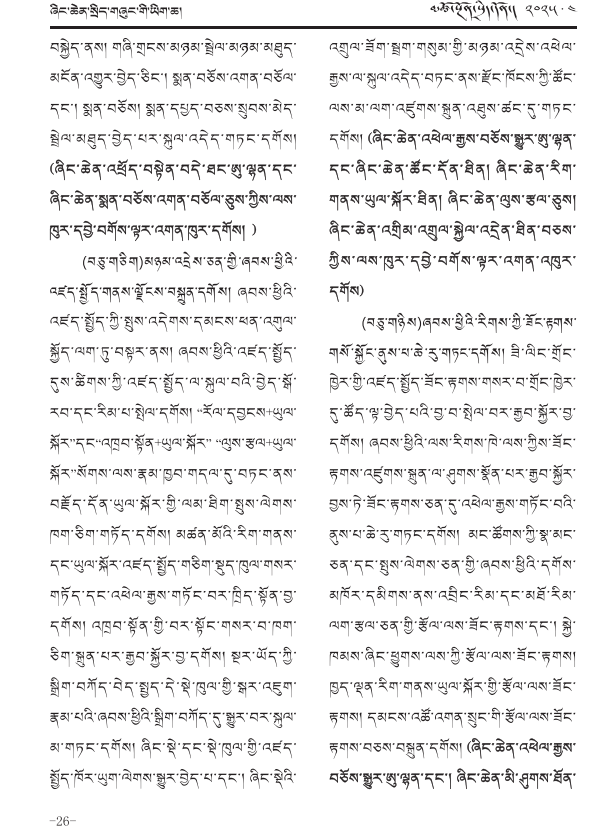 ཞིང་ཆེན་སྲིད་གཞུང་གི་ཡིག་ཆ།
༢༠༢༥ · ༤
བསྐྱེད་ནས། གཞི་གྲངས་མཉམ་སྦྲེལ་མཉམ་མཐུད་
མངོན་འགྱུར་བྱེད་ཅིང་། སྨན་བཅོས་འགན་བཅོལ་
དང་། སྨན་བཅོས། སྨན་དཔྱད་བཅས་སྲུབས་མེད་
སྦྲེལ་མཐུད་བྱེད་པར་སྐུལ་འདེད་གཏང་དགོས།
(ཞིང་ཆེན་འཕྲོད་བསྟེན་བདེ་ཐང་ཨུ་ལྷན་དང་
ཞིང་ཆེན་སྨན་བཅོས་འགན་བཅོལ་ཅུས་ཀྱིས་ལས་
ཁུར་དབྱེ་བགོས་ལྟར་འགན་ཁུར་དགོས། )
(བཅུ་གཅིག)མཉམ་འདྲེས་ཅན་གྱི་ཞབས་ཕྱིའི་
འཛད་སྤྱོད་གནས་ལྗོངས་བསྐྲུན་དགོས། ཞབས་ཕྱིའི་
འཛད་སྤྱོད་ཀྱི་སྤུས་འདེགས་དམངས་ཕན་འགུལ་
སྐྱོད་ལག་ཏུ་བསྟར་ནས། ཞབས་ཕྱིའི་འཛད་སྤྱོད་
དུས་ཚིགས་ཀྱི་འཛད་སྤྱོད་ལ་སྐུལ་བའི་བྱེད་སྒོ་
རབ་དང་རིམ་པ་སྤེལ་དགོས། “རོལ་དབྱངས+ཡུལ་
སྐོར”དང“འཁྲབ་སྟོན+ཡུལ་སྐོར” “ལུས་རྩལ+ཡུལ་
སྐོར”སོགས་ལས་རྣམ་ཁྱབ་གདལ་དུ་བཏང་ནས་
བརྗོད་དོན་ཡུལ་སྐོར་གྱི་ལམ་ཐིག་སྤུས་ལེགས་
ཁག་ཅིག་གཏོད་དགོས། མཚན་མོའི་རིག་གནས་
དང་ཡུལ་སྐོར་འཛད་སྤྱོད་གཅིག་སྡུད་ཁུལ་གསར་
གཏོད་དང་འཕེལ་རྒྱས་གཏོང་བར་ཁྲིད་སྟོན་བྱ་
དགོས། འཁྲབ་སྟོན་གྱི་བར་སྟོང་གསར་བ་ཁག་
ཅིག་སྐྲུན་པར་རྒྱབ་སྐྱོར་བྱ་དགོས། སྔར་ཡོད་ཀྱི་
སྒྲིག་བཀོད་བེད་སྤྱད་དེ་སྡེ་ཁུལ་གྱི་སྒར་འཇུག་
རྣམ་པའི་ཞབས་ཕྱིའི་སྒྲིག་བཀོད་དུ་སྒྱུར་བར་སྐུལ་
མ་གཏང་དགོས། ཞིང་སྡེ་དང་སྡེ་ཁུལ་གྱི་འཛད་
སྤྱོད་ཁོར་ཡུག་ལེགས་སྒྱུར་བྱེད་པ་དང་། ཞིང་སྡེའི་
འགྲུལ་ཟོག་སྦྲག་གསུམ་གྱི་མཉམ་འདྲེས་འཕེལ་
རྒྱས་ལ་སྐུལ་འདེད་བཏང་ནས་རྫོང་ཁོངས་ཀྱི་ཚོང་
ལས་མ་ལག་འཛུགས་སྐྲུན་འཐུས་ཚང་དུ་གཏང་
དགོས། (ཞིང་ཆེན་འཕེལ་རྒྱས་བཅོས་སྒྱུར་ཨུ་ལྷན་
དང་ཞིང་ཆེན་ཚོང་དོན་ཐིན། ཞིང་ཆེན་རིག་
གནས་ཡུལ་སྐོར་ཐིན། ཞིང་ཆེན་ལུས་རྩལ་ཅུས།
ཞིང་ཆེན་འགྲིམ་འགྲུལ་སྐྱེལ་འདྲེན་ཐིན་བཅས་
ཀྱིས་ལས་ཁུར་དབྱེ་བགོས་ལྟར་འགན་འཁུར་
དགོས)
(བཅུ་གཉིས)ཞབས་ཕྱིའི་རིགས་ཀྱི་ཟོང་རྟགས་
གསོ་སྐྱོང་ནུས་པ་ཆེ་རུ་གཏང་དགོས། ཟི་ལིང་གྲོང་
ཁྱེར་གྱི་འཛད་སྤྱོད་ཟོང་རྟགས་གསར་བ་གྲོང་ཁྱེར་
དུ་ཚོད་ལྟ་བྱེད་པའི་བྱ་བ་སྤེལ་བར་རྒྱབ་སྐྱོར་བྱ་
དགོས། ཞབས་ཕྱིའི་ལས་རིགས་ཁེ་ལས་ཀྱིས་ཟོང་
རྟགས་འཛུགས་སྐྲུན་ལ་ཤུགས་སྣོན་པར་རྒྱབ་སྐྱོར་
བྱས་ཏེ་ཟོང་རྟགས་ཅན་དུ་འཕེལ་རྒྱས་གཏོང་བའི་
ནུས་པ་ཆེ་རུ་གཏང་དགོས། མང་ཚོགས་ཀྱི་སྣ་མང་
ཅན་དང་སྤུས་ལེགས་ཅན་གྱི་ཞབས་ཕྱིའི་དགོས་
མཁོར་དམིགས་ནས་འབྲིང་རིམ་དང་མཐོ་རིམ་
ལག་རྩལ་ཅན་གྱི་རྩོལ་ལས་ཟོང་རྟགས་དང་། སྐྱེ་
ཁམས་ཞིང་ཕྱུགས་ལས་ཀྱི་རྩོལ་ལས་ཟོང་རྟགས།
ཁྱད་ལྡན་རིག་གནས་ཡུལ་སྐོར་གྱི་རྩོལ་ལས་ཟོང་
རྟགས། དམངས་འཚོ་འགན་སྲུང་གི་རྩོལ་ལས་ཟོང་
རྟགས་བཅས་བསྐྲུན་དགོས། (ཞིང་ཆེན་འཕེལ་རྒྱས་
བཅོས་སྒྱུར་ཨུ་ལྷན་དང་། ཞིང་ཆེན་མི་ཤུགས་ཐོན་
-26-